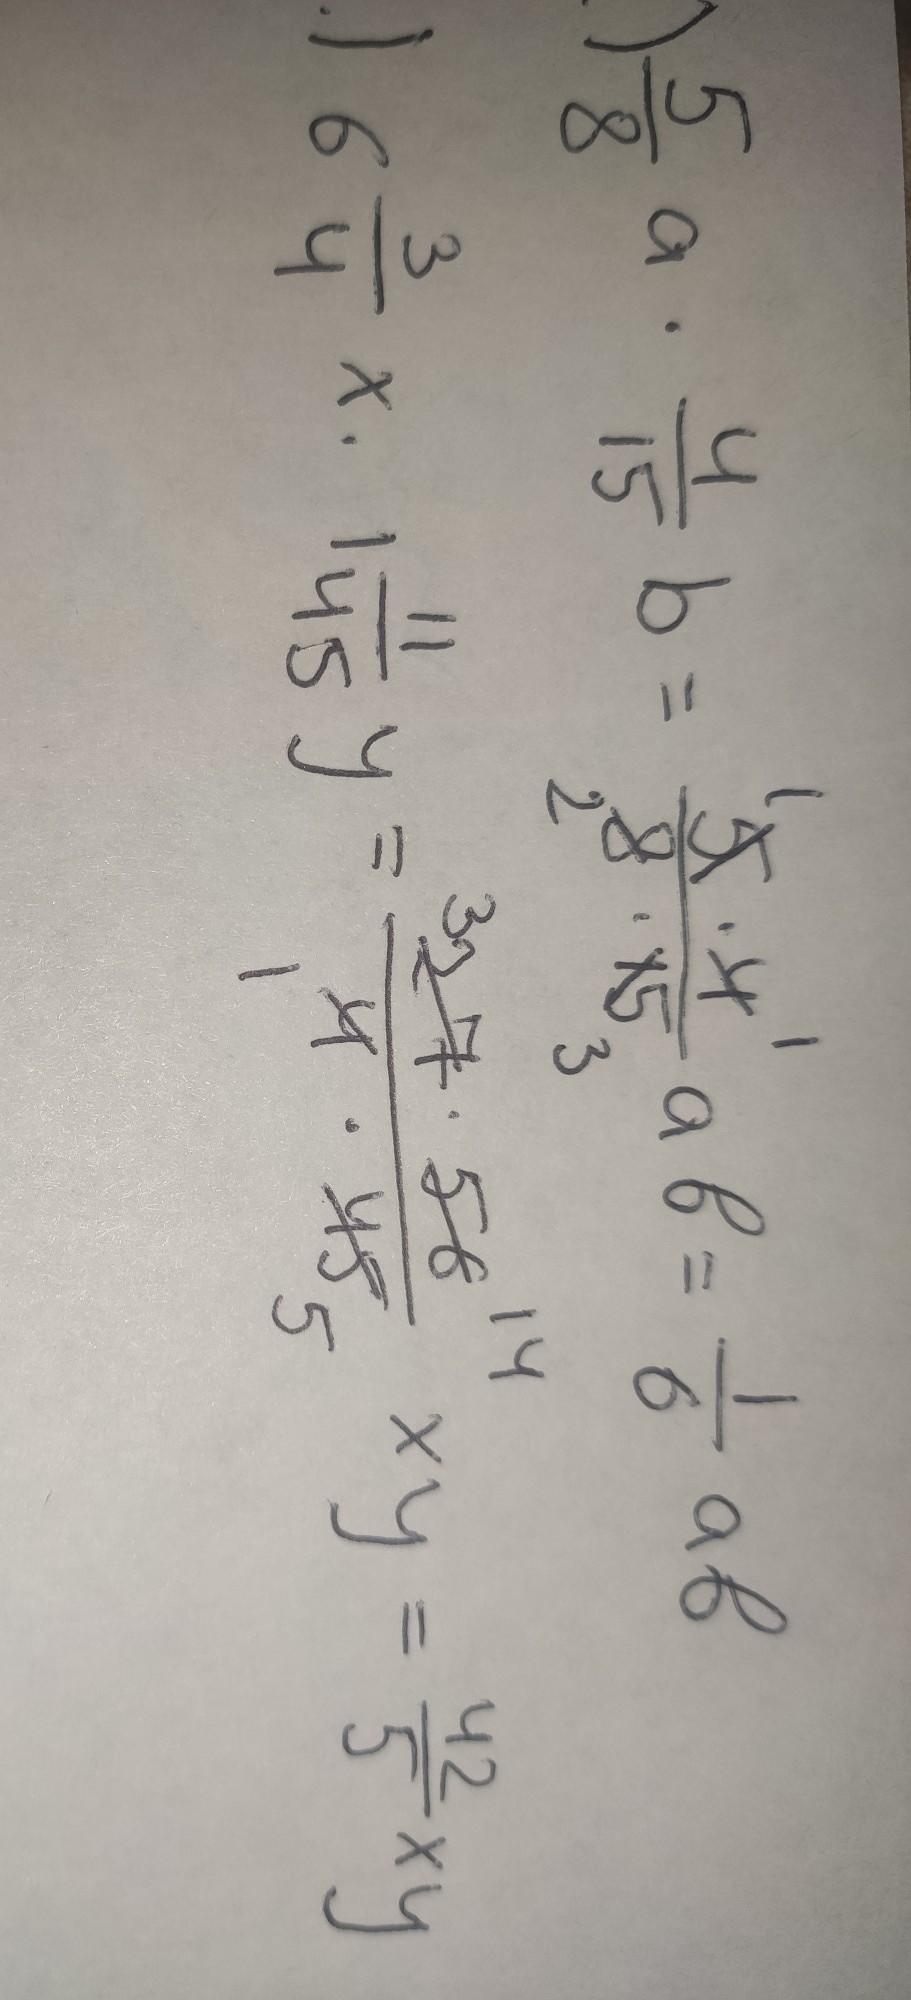 .) 5/8 a · 4/15 b = 5 · 4 / 8 · 15 ab = 1/6 ab
.) 6 3/4 x · 1 11/45 y = 27 · 56 / 4 · 45 xy = 42/5 xy